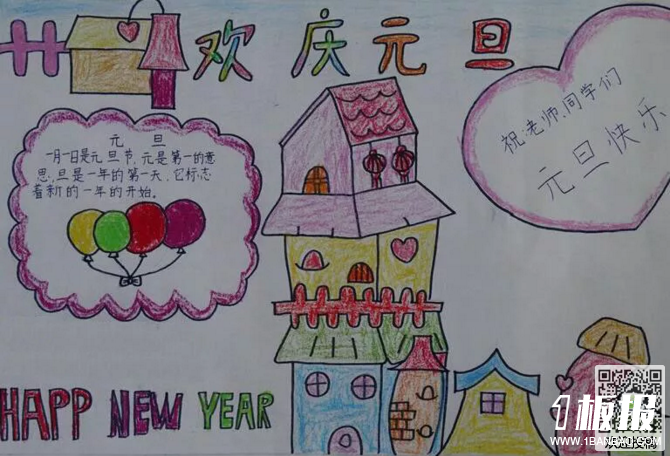 欢庆元旦
元 旦
一月一日是元旦节,元是第一的意
思,旦是一年的第一天,它标志
着新的一年的开始。
祝:老师、同学们
元旦快乐
HAPP NEW YEAR
1板报
WWW.1BANBAO.COM